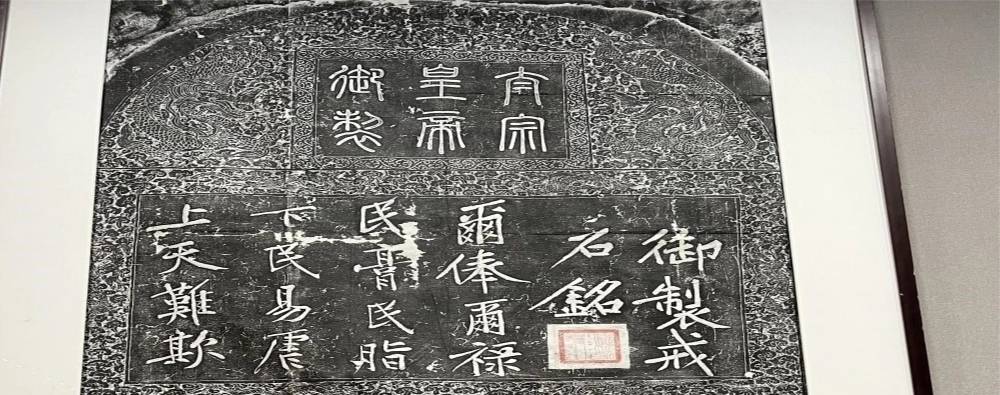 太宗
皇帝
御製
御製戒
石銘
爾俸爾祿
民膏民脂
下民易虐
上天難欺